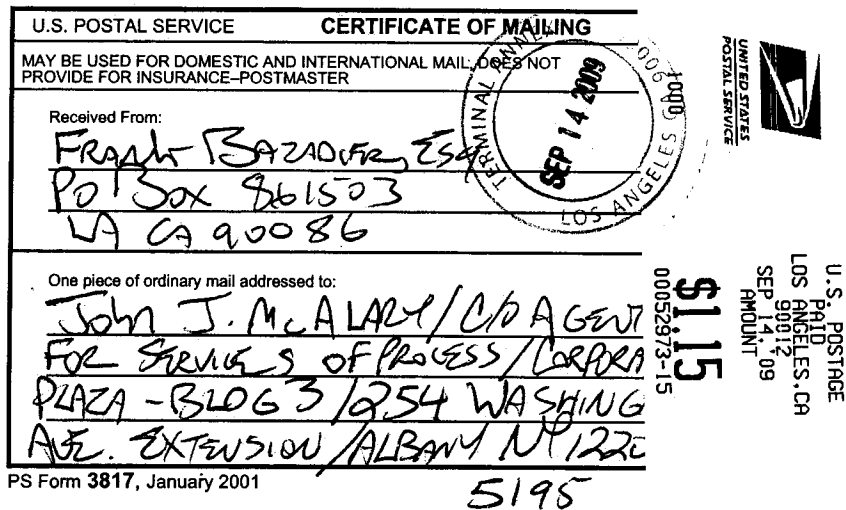 U.S. POSTAL SERVICE CERTIFICATE OF MAILING
MAY BE USED FOR DOMESTIC AND INTERNATIONAL MAIL, DOES NOT
PROVIDE FOR INSURANCE–POSTMASTER
Received From:
Frank Bazadier, Esq
PO Box 861503
LA CA 90086
One piece of ordinary mail addressed to:
John J. McALARY / C/O AGENT
FOR SERVICES OF PROCESS / CORPORA
PLAZA - BLDG 3 / 254 WASHING
AVE. EXTENSION / ALBANY NY 122
PS Form 3817, January 2001
5195
TERMINAL ANNEX
LOS ANGELES CA 900
SEP 14 2009
1000
UNITED STATES
POSTAL SERVICE
U.S. POSTAGE
PAID
LOS ANGELES, CA
90012
SEP 14, '09
AMOUNT
$1.15
00052973-15